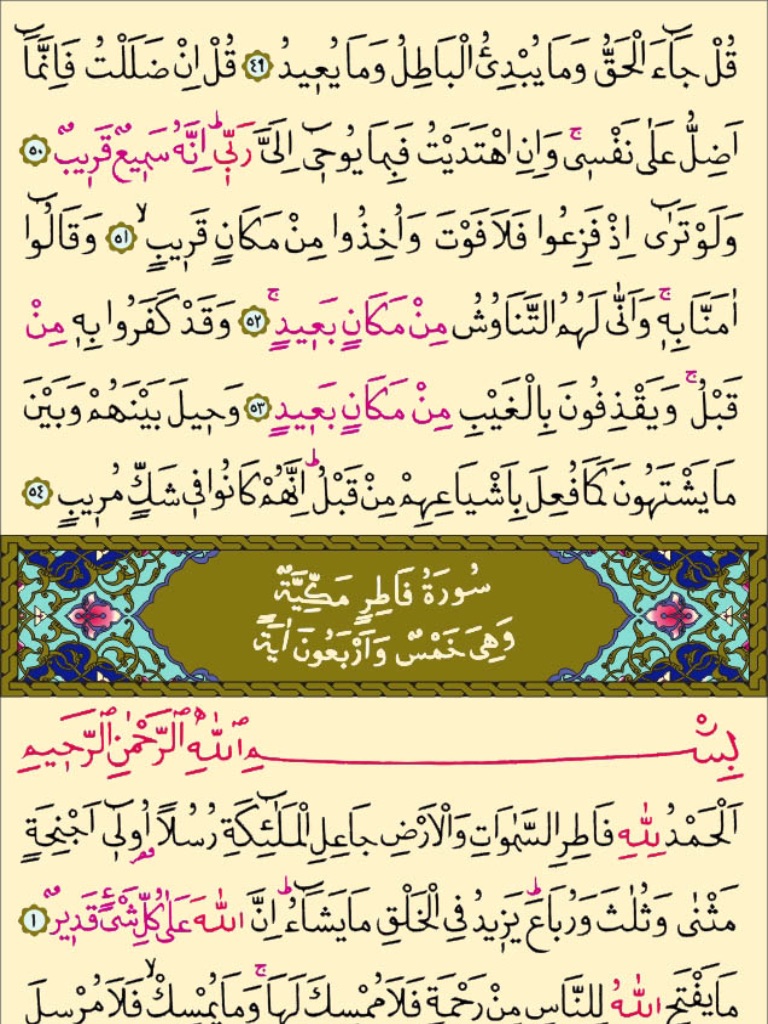 قُلْ جَٓاءَ الْحَقُّ وَمَا يُبْدِئُ الْبَاطِلُ وَمَا يُعٖيدُ ﴿٤٩﴾ قُلْ اِنْ ضَلَلْتُ فَاِنَّمَٓا
اَضِلُّ عَلٰى نَفْسٖىۚ وَاِنِ اهْتَدَيْتُ فَبِمَا يُوحٖٓى اِلَىَّ رَبّٖىؕ اِنَّهُ سَمٖيعٌ قَرٖيبٌ ﴿٥٠﴾
وَلَوْ تَرٰٓى اِذْ فَزِعُوا فَلَا فَوْتَ وَاُخِذُوا مِنْ مَكَانٍ قَرٖيبٍۙ ﴿٥١﴾ وَقَالُٓوا
اٰمَنَّا بِهٖۚ وَاَنّٰى لَهُمُ التَّنَاوُشُ مِنْ مَكَانٍ بَعٖيدٍۚ ﴿٥٢﴾ وَقَدْ كَفَرُوا بِهٖ مِنْ
قَبْلُۚ وَيَقْذِفُونَ بِالْغَيْبِ مِنْ مَكَانٍ بَعٖيدٍ ﴿٥٣﴾ وَحٖيلَ بَيْنَهُمْ وَبَيْنَ
مَا يَشْتَهُونَ كَمَا فُعِلَ بِاَشْيَاعِهِمْ مِنْ قَبْلُؕ اِنَّهُمْ كَانُوا فٖى شَكٍّ مُرٖيبٍ ﴿٥٤﴾
سُورَةُ فَاطِرٍ مَكِّيَّةٌ
وَهِىَ خَمْسٌ وَاَرْبَعُونَ اٰيَةً
بِسْمِ اللّٰهِ الرَّحْمٰنِ الرَّحٖيمِ
اَلْحَمْدُ لِلّٰهِ فَاطِرِ السَّمٰوَاتِ وَالْاَرْضِ جَاعِلِ الْمَلٰٓئِكَةِ رُسُلًا اُولٖٓى اَجْنِحَةٍ
مَثْنٰى وَثُلٰثَ وَرُبَاعَؕ يَزٖيدُ فِى الْخَلْقِ مَا يَشَٓاءُؕ اِنَّ اللّٰهَ عَلٰى كُلِّ شَىْءٍ قَدٖيرٌ ﴿١﴾
مَا يَفْتَحِ اللّٰهُ لِلنَّاسِ مِنْ رَحْمَةٍ فَلَا مُمْسِكَ لَهَاۚ وَمَا يُمْسِكْۙ فَلَا مُرْسِلَ